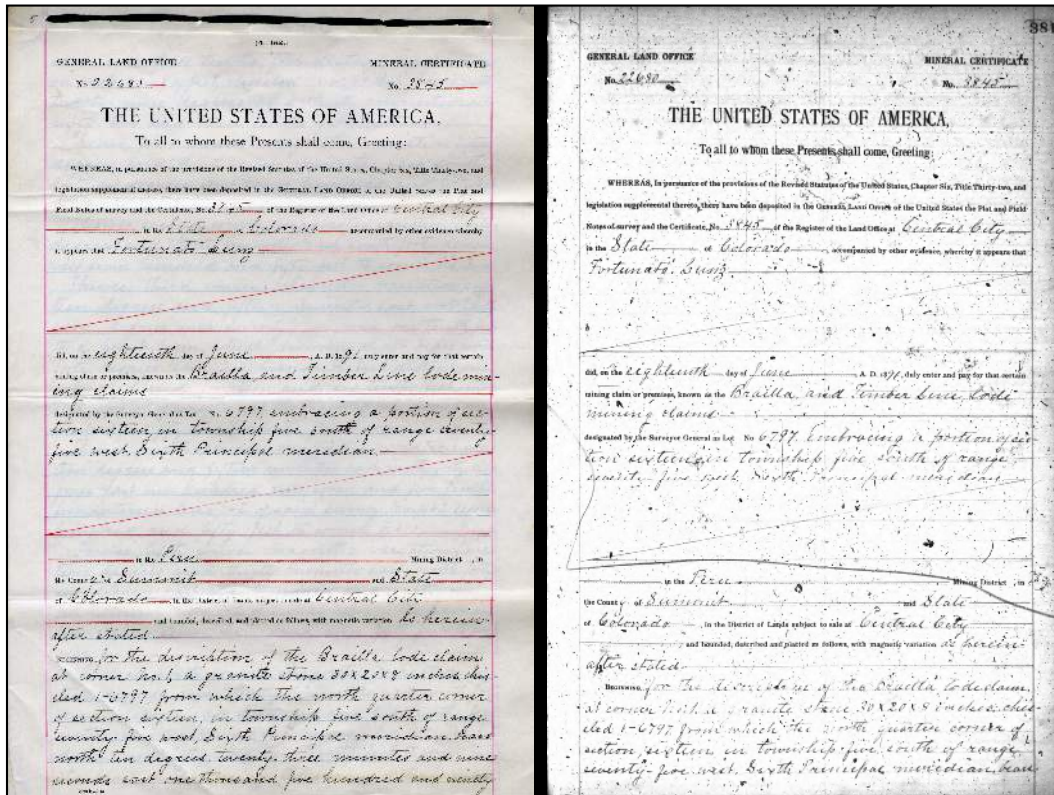 GENERAL LAND OFFICE
No. 22680
MINERAL CERTIFICATE
No. 3845
THE UNITED STATES OF AMERICA,
To all to whom these Presents shall come, Greeting:
WHEREAS, in pursuance of the provisions of the Revised Statutes of the United States, Chapter Six, Title Thirty-two, and
legislation supplemental thereto, there have been deposited in the GENERAL LAND OFFICE of the United States the Plat and
Field Notes of survey and the Certificate, No. 3845 of the Register of the Land Office at Central City
in the State of Colorado accompanied by other evidence whereby
it appears that Fortunato
did, on the eighteenth day of June, A. D. 1891 duly enter and pay for that certain
mining claim or premises, known as the Brailla and Timber Line lode min-
ing claims
designated by the Surveyor General as Lot No. 6797, embracing a portion of sec-
tion sixteen, in township five south of range seventy-
five west, Sixth Principal meridian
in the Peru Mining District, in
the County of Summit and State
of Colorado in the District of Lands subject to sale at Central City
and bounded, described, and platted as follows, with magnetic variation as herein-
after stated
BEGINNING for the description of the Brailla lode claim
at corner No. 1, a granite stone 30x20x8 inches chis-
eled 1-6797 from which the north quarter corner
of section sixteen, in township five south of range
seventy five west, Sixth Principal meridian bears
north ten degrees twenty-three minutes and nine
seconds east one thousand five hundred and ninety
381
GENERAL LAND OFFICE
No. 22680
MINERAL CERTIFICATE
No. 3845
THE UNITED STATES OF AMERICA,
To all to whom these Presents shall come, Greeting:
WHEREAS, In pursuance of the provisions of the Revised Statutes of the United States, Chapter Six, Title Thirty-two, and
legislation supplemental thereto, there have been deposited in the GENERAL LAND OFFICE of the United States the Plat and Field
Notes of survey and the Certificate, No. 3845 of the Register of the Land Office at Central City
in the State of Colorado, accompanied by other evidence, whereby it appears that
Fortunato
did, on the eighteenth day of June, A. D. 1891, duly enter and pay for that certain
mining claim or premises, known as the Brailla and Timber Line lode
mining claims
designated by the Surveyor General as Lot No. 6797. Embracing a portion of sec-
tion sixteen in township five south of range
seventy-five west, Sixth Principal meridian
in the Peru Mining District, in
the County of Summit and State
of Colorado, in the District of Lands subject to sale at Central City
and bounded, described and platted as follows, with magnetic variation as herein-
after stated
BEGINNING for the description of the Brailla lode claim
at corner No. 1, a granite stone 30x20x8 inches chis-
eled 1-6797 from which the north quarter corner of
section sixteen in township five south of range
seventy-five west, Sixth Principal meridian, bears